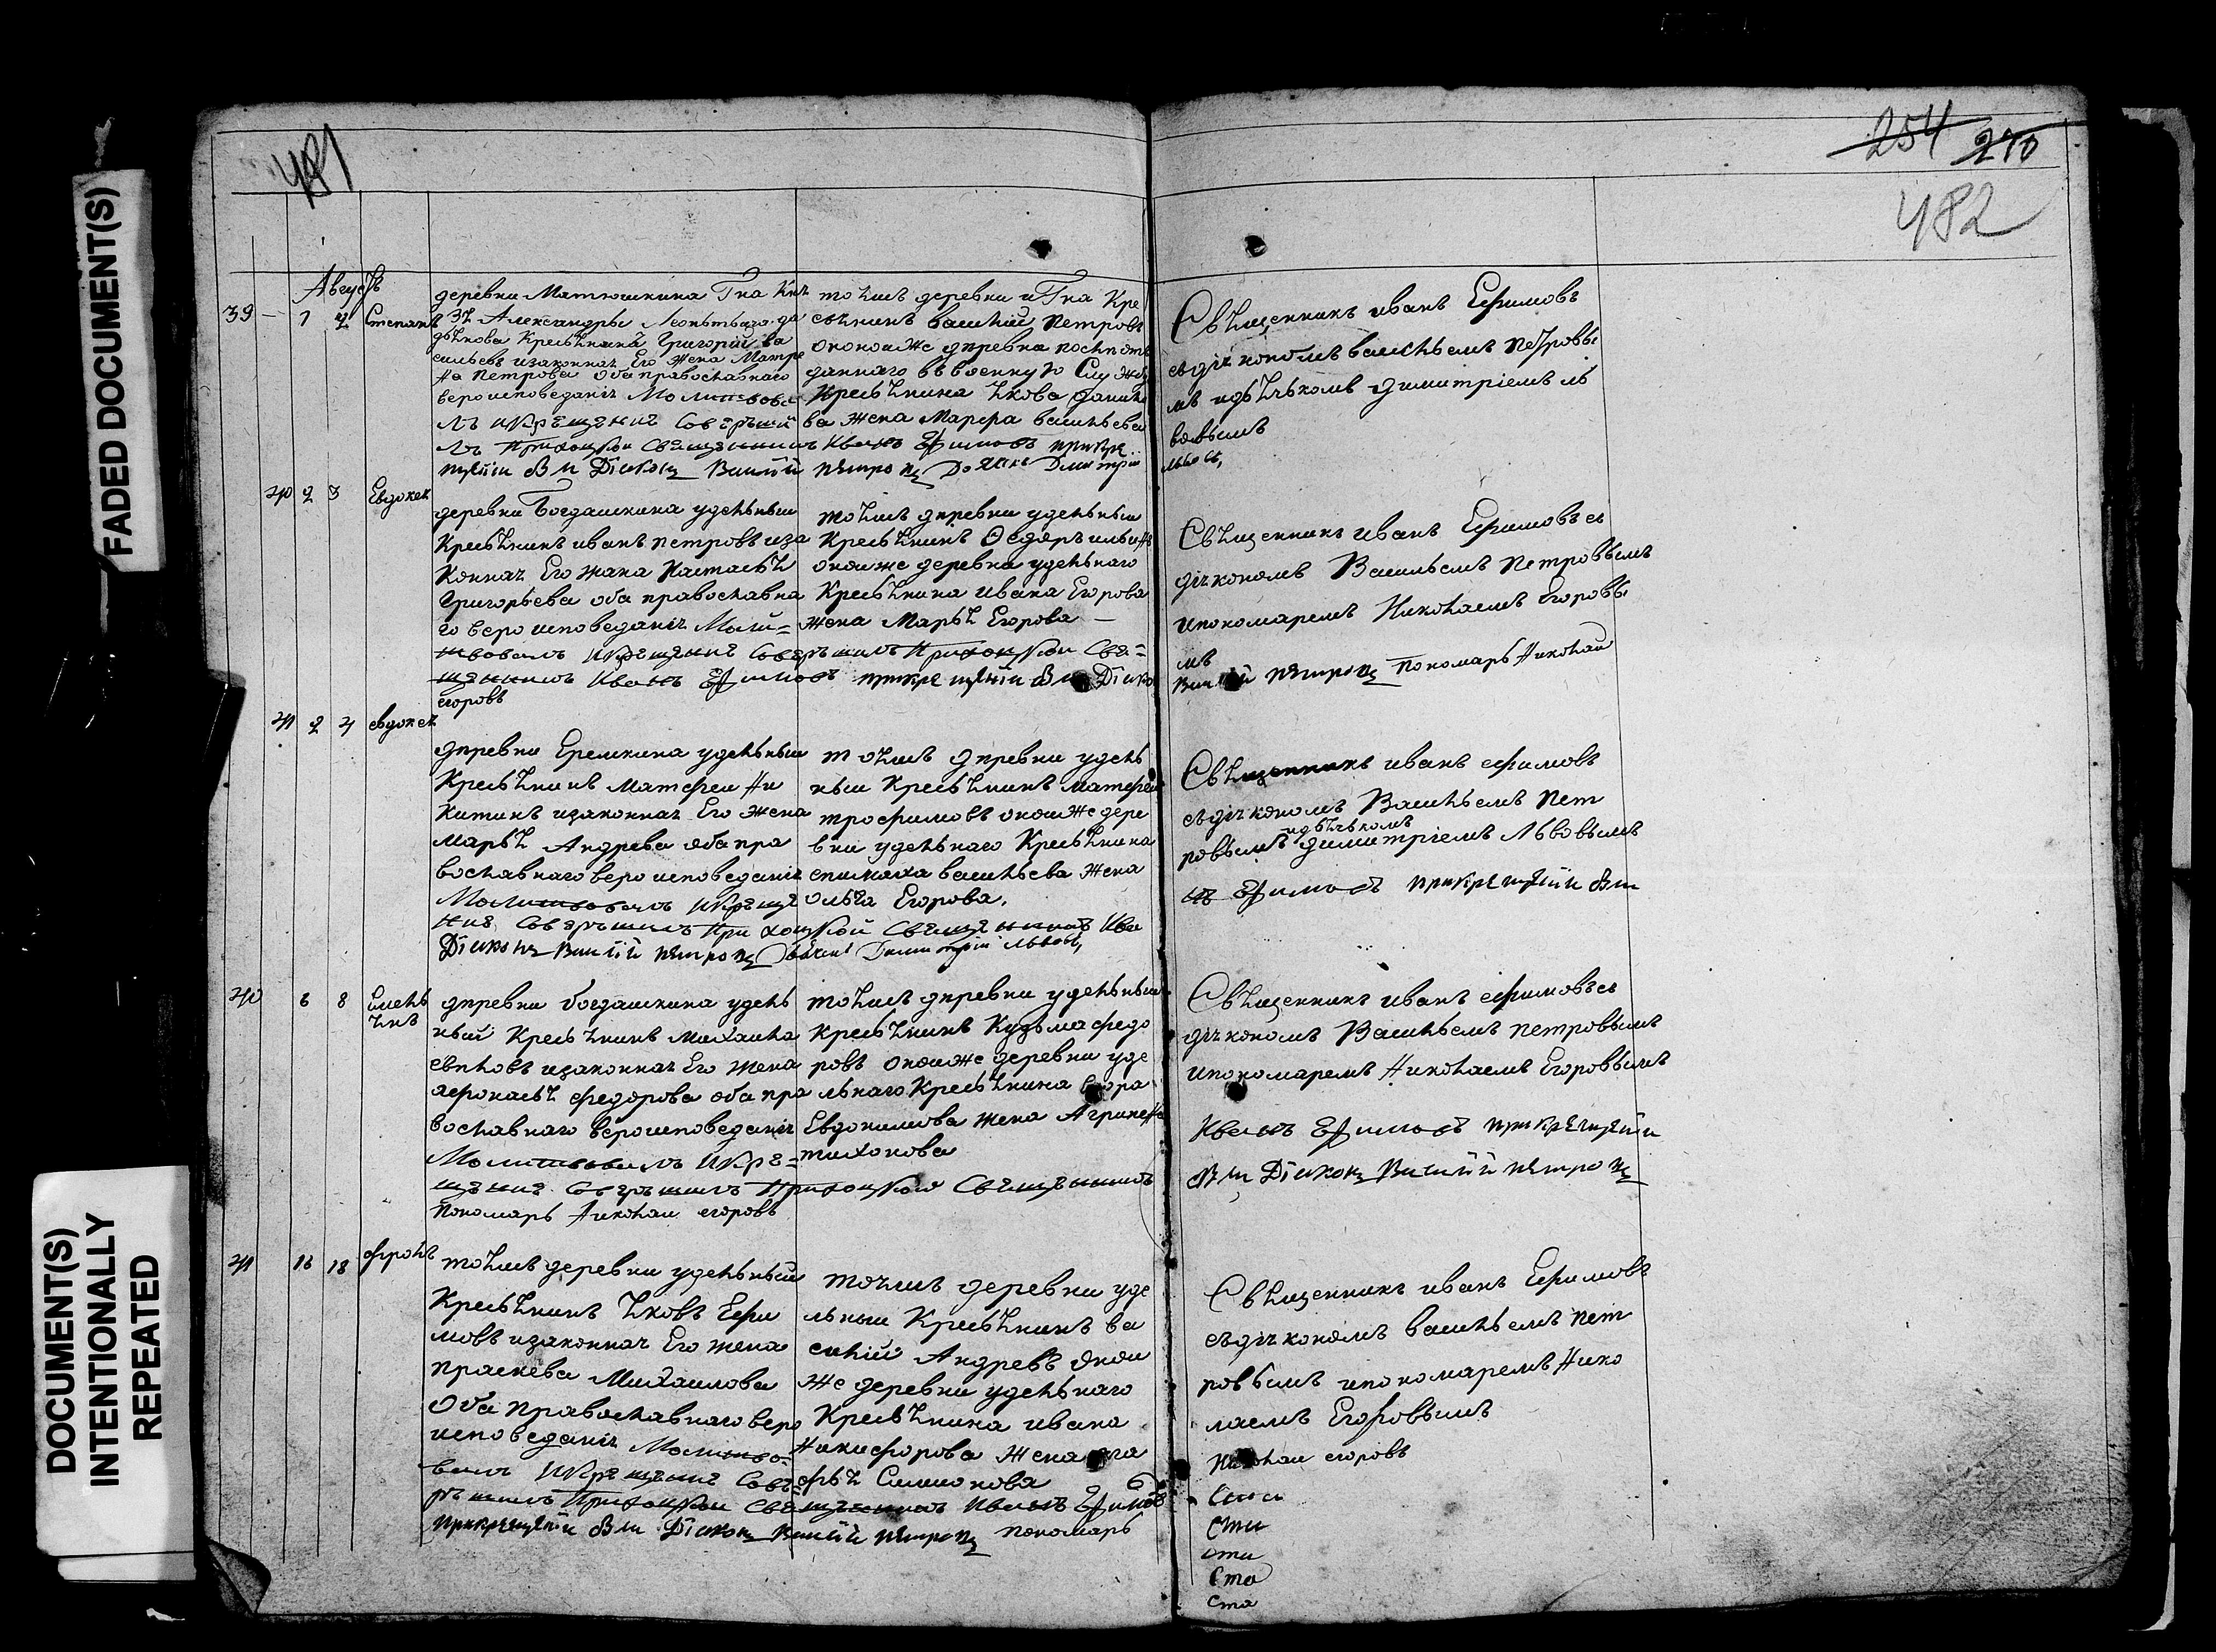 FADED DOCUMENT(S)
DOCUMENT(S)
INTENTIONALLY
REPEATED
481
254 270
482
Августъ
39 — 1 2 Степанъ
деревни Матюшкина Гна Кня
зя Александры Леонтьича
Кресьянина Григорій Ва
сильевъ изаконная Его Жена Матре
на Петрова Оба православнаго
вероисповеданія Молитвова
лъ икрещение Совершил
Приходской Священникъ Иванъ Ефимовъ прикре
щеніи Были Діаконъ Василій Петровъ Дьячекъ Димитрій
Львовъ
тоѣже деревни иГна Кре
сьянинъ василій Петровъ
оноѣже деревни
даннаго ввоенную Службу
Кресьянина Якова Данило
ва жена Марфа васильева
Священникъ иванъ Ефимовъ
съдіякономъ васильемъ петровы
мъ идьячькомъ димитріемъ ль
вовымъ
40 2 3 Евдокея
деревни Богдашкина удельный
Кресьянинъ иванъ петровъ иза
конная Его жена Настасья
Григорьева оба православна
го вероисповеданія Моли=
твовалъ икрещение Совершилъ Приходской Свя=
щенникъ Иванъ Ефимовъ прикрещеніи Были Діако
егоровъ
тоѣже деревни удельныи
Кресьянинъ Ѳедоръ ильинъ
оноѣже деревни удельнаго
Кресьянина ивана Егорова
жена Марья Егорова —
Священникъ иванъ Ефимовъ съ
діякономъ Васильемъ Петровымъ
ипономаремъ Николаемъ Егоровы
мъ
Василій Петровъ Пономарь Николаи
41 2 4 евдокея
деревни Еремкина удельныи
Кресьянинъ Матфеи Ни
китинъ изаконная Его жена
марья Андрева оба пра
вославнаго вероисповеданія
Молитвовалъ икреще
ние Совершилъ Приходской Священникъ Ива
Діаконъ Василій Петровъ Дьячекъ Димитрій Львовъ
тоѣже деревни удель
ныи Кресьянинъ матфеи
трофимовъ оноѣже дере
вни удельнаго Кресьянина
васильева жена
Ольга Егорова.
Священникъ иванъ ефимовъ
съдіякономъ Васильемъ Пет
идьячькомъ
ровымъ димитріемъ Львовымъ
нъ Ефимовъ прикрещеніи Были
40 6 8 Емель
янъ
деревни богдашкина удель
ный Кресьянинъ Михаила
изаконная Его жена
афонасья федорова оба пра
вославнаго вероисповеданія
Молитвовалъ икре=
щение Совершилъ Приходской Священникъ
Пономарь Николаи егоровъ
тоѣже деревни удельныи
кресьянинъ Кузьма федо
ровъ оноѣже деревни уде
льнаго Кресьянина
Евдокимова жена Агрипена
тихонова
Священникъ иванъ ефимовъ съ
діякономъ Васильемъ петровымъ
ипономаремъ Николаемъ Егоровымъ
Иванъ Ефимовъ прикрещеніи
Были Діаконъ Василій Петровъ
41 16 18 фролъ
тоѣже деревни удельный
Кресьянинъ Яковъ Ефи
мовъ изаконная Его жена
праскева Михаилова
Оба Православнаго веро
исповеданія Молитво=
валъ икрещение Сове=
ршилъ Приходской Священникъ Иванъ Ефимовъ
прикрещеніи Были Діаконъ Василій Петровъ пономарь
тоѣже деревни уде
льныи Кресьянинъ ва
силій Андревъ оноѣ
же деревни удельнаго
Кресьянина ивана
Никифорова жена ага
фья Симионова
Священникъ иванъ Ефимовъ
съдіякономъ васильемъ пет
ровымъ ипономаремъ Нико
лаемъ Егоровымъ
Николаи егоровъ